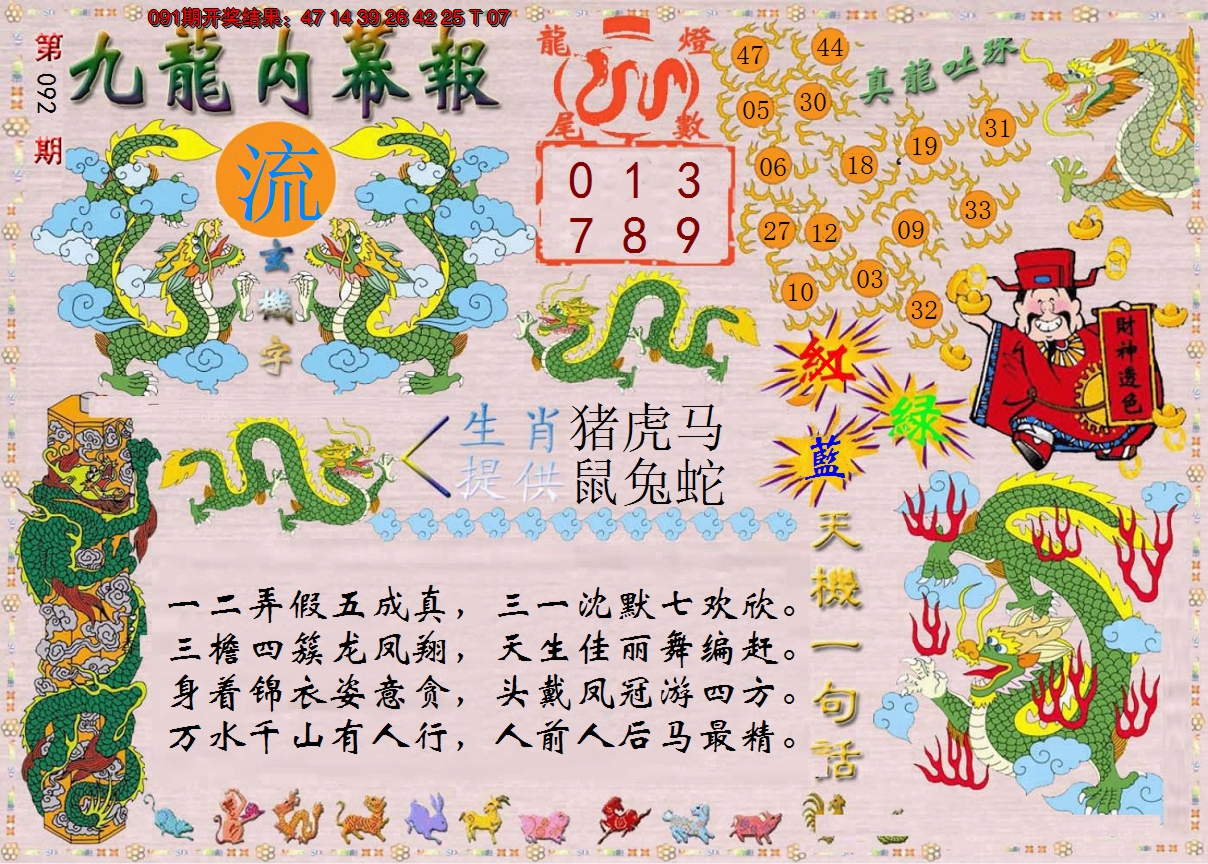 091期开奖结果：47 14 39 26 42 25 T 07
第092期
九龍内幕報
流
玄機字
龍燈
尾數
0 1 3
7 8 9
真龍吐珠
47 44
05 30
06 18 19 31
27 12 09 33
10 03 32
財神透色
紅
綠
藍
生肖 猪虎马
提供 鼠兔蛇
天機一句話
一二弄假五成真，三一沈默七欢欣。
三檐四簇龙凤翔，天生佳丽舞编赶。
身着锦衣姿意贪，头戴凤冠游四方。
万水千山有人行，人前人后马最精。